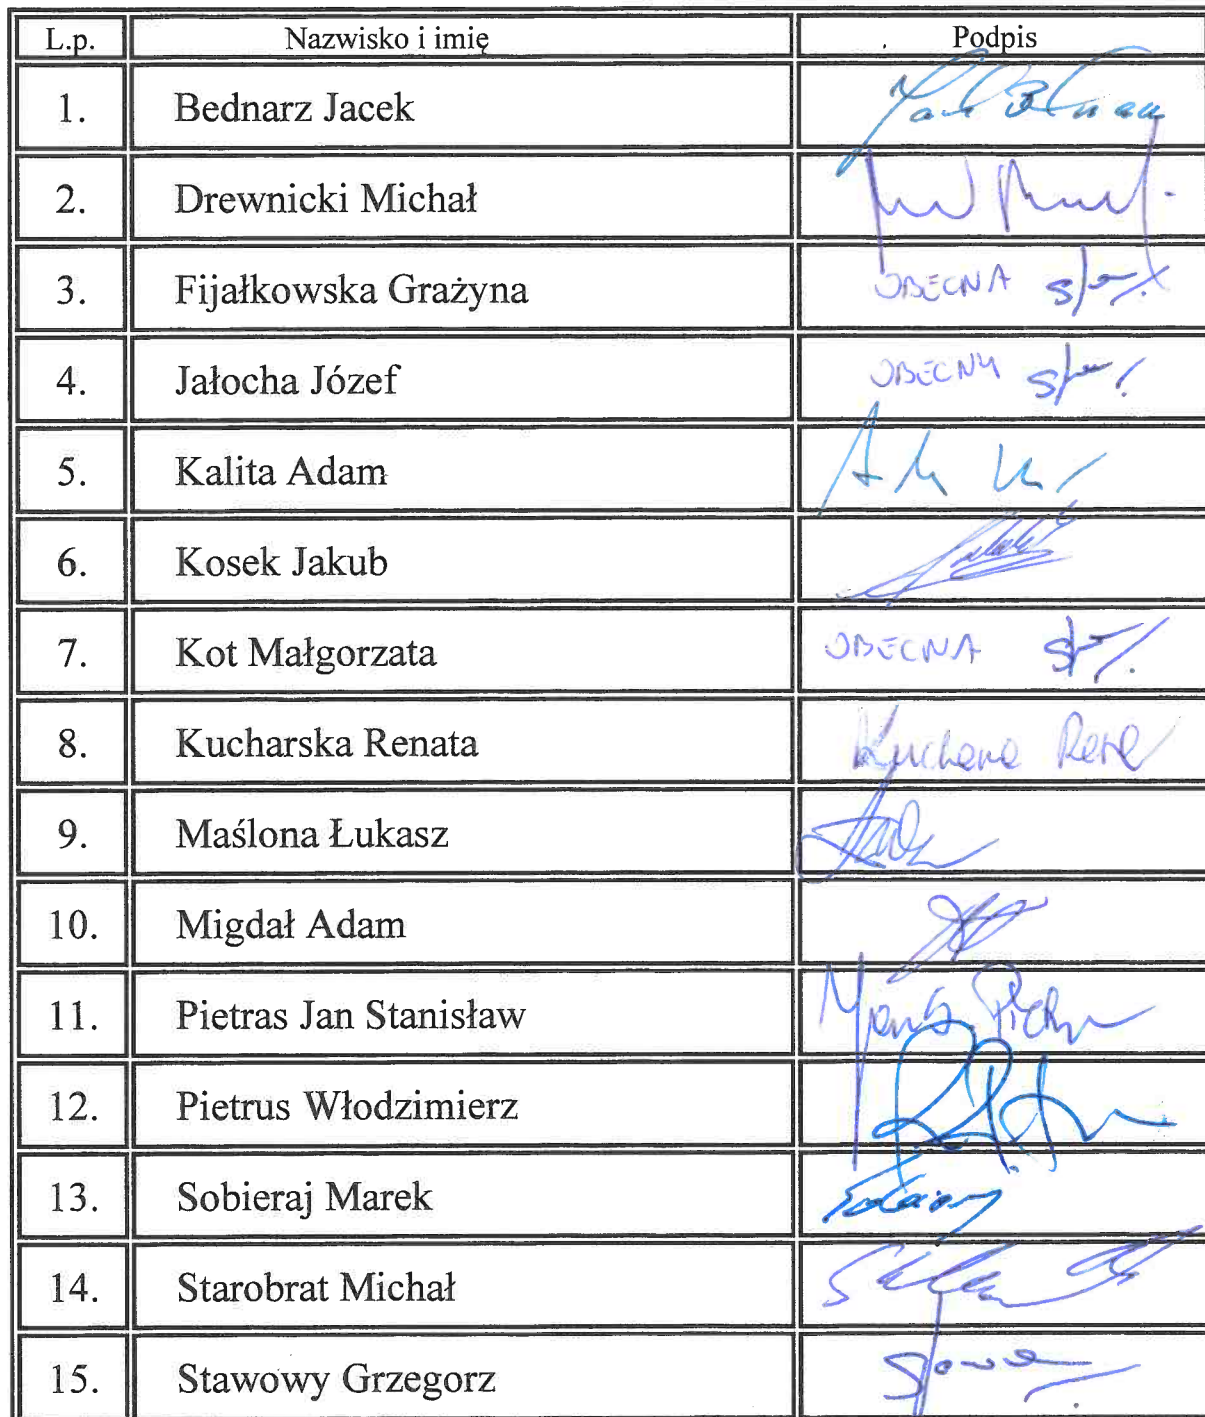 L.p. Nazwisko i imię Podpis
1. Bednarz Jacek
2. Drewnicki Michał
3. Fijałkowska Grażyna OBECNA
4. Jałocha Józef OBECNY
5. Kalita Adam
6. Kosek Jakub
7. Kot Małgorzata OBECNA
8. Kucharska Renata
9. Maślona Łukasz
10. Migdał Adam
11. Pietras Jan Stanisław
12. Pietrus Włodzimierz
13. Sobieraj Marek
14. Starobrat Michał
15. Stawowy Grzegorz